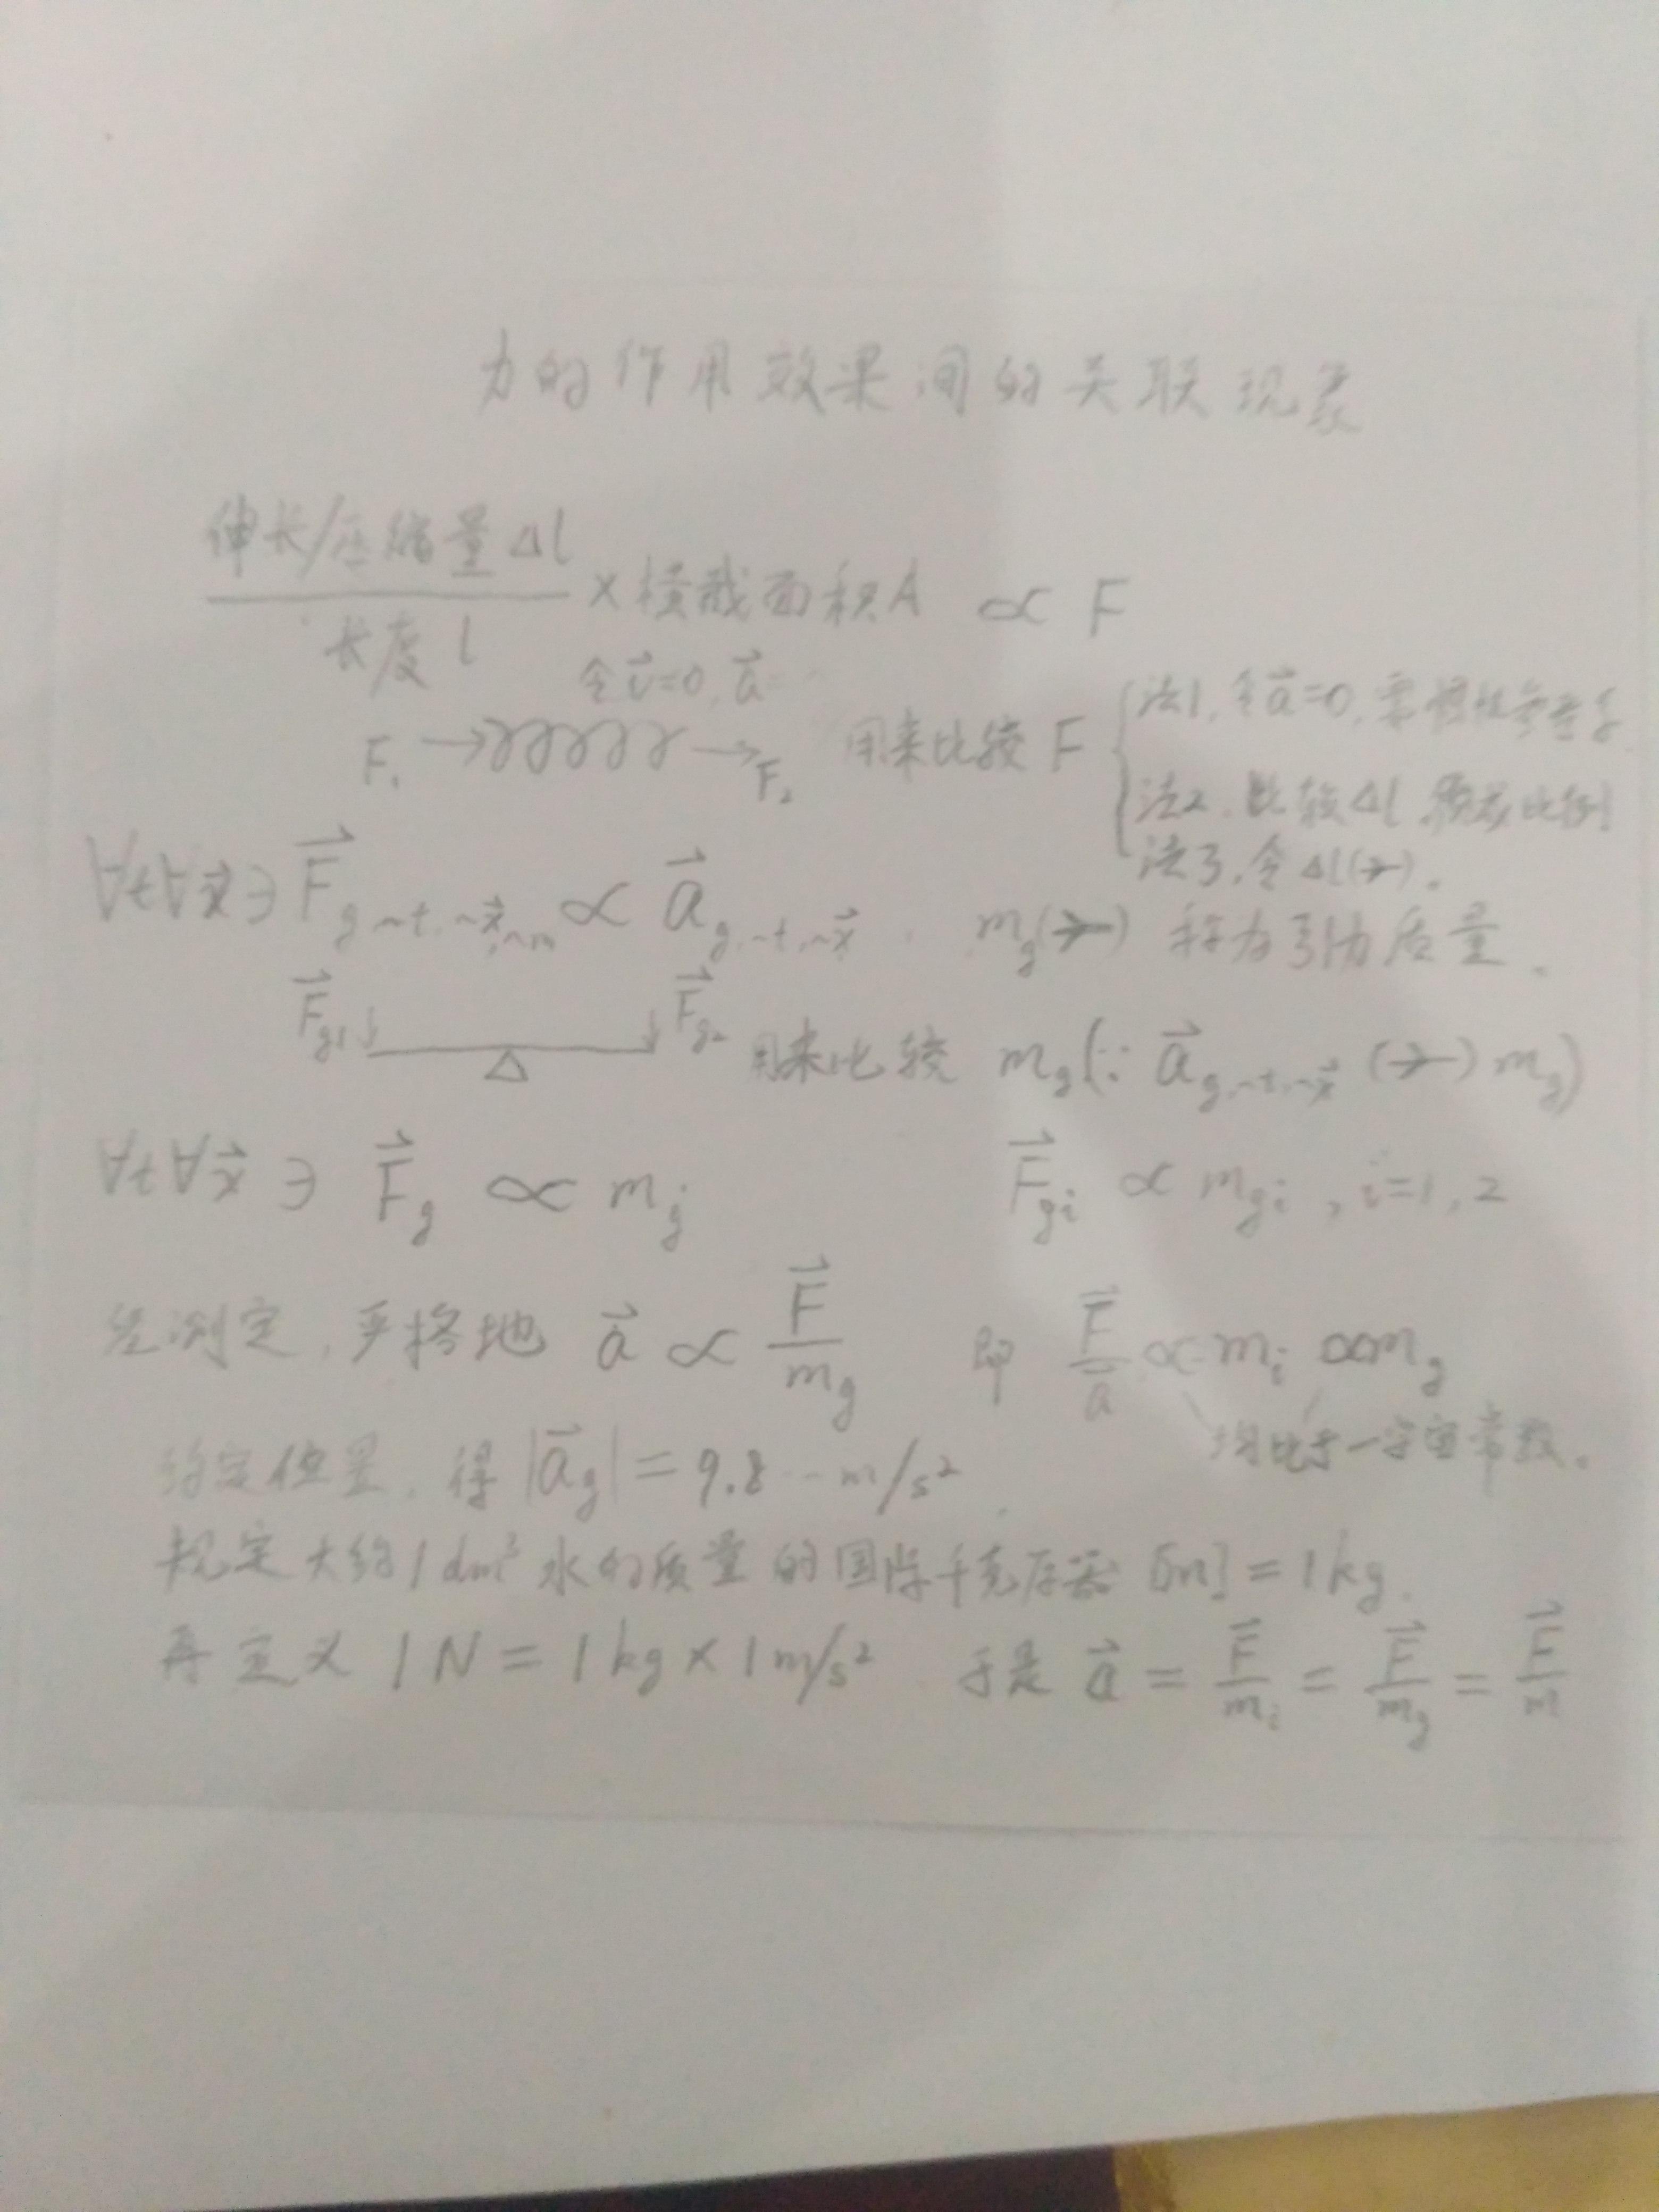 力的作用效果间的关联现象
伸长/压缩量Δl
———— ×横截面积A ∝ F
长度 l
令 v⃗=0, a⃗
F₁ → → F₂ 用来比较 F
法1, 令 a⃗=0, 需惯性参考系
法2, 比较Δl, 比例
法3, 令Δl(→).
∀t∀x⃗∋ F⃗g~t,~x⃗,~m ∝ a⃗g,~t,~x⃗ . mg(→) 称为引力质量.
F⃗g1↓ Δ ↓F⃗g2 用来比较 mg(∵ a⃗g,~t,~x⃗ (→) mg)
∀t∀x⃗ ∋ F⃗g ∝ mg F⃗gi ∝ mgi , i=1,2
经测定, 严格地 a⃗ ∝ F⃗/mg 即 F⃗/a⃗ ∝ mi ∝ mg
均比于一宇宙常数.
约定位置, 得 |a⃗g| = 9.8… m/s²
规定大约1dm³水的质量的国际千克原器 [m]=1kg.
再定义 1N=1kg×1m/s² 于是 a⃗ = F⃗/mi = F⃗/mg = F⃗/m